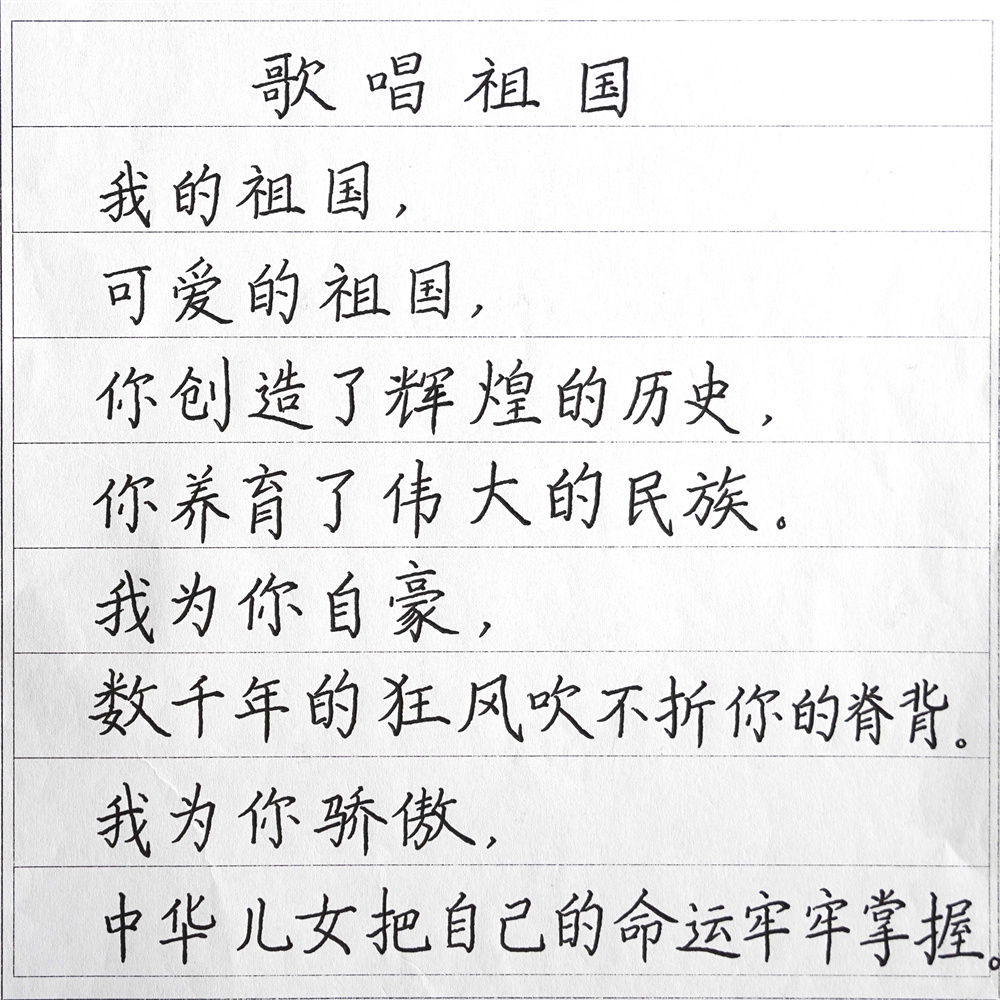 歌唱祖国
我的祖国，
可爱的祖国，
你创造了辉煌的历史，
你养育了伟大的民族。
我为你自豪，
数千年的狂风吹不折你的脊背。
我为你骄傲，
中华儿女把自己的命运牢牢掌握。